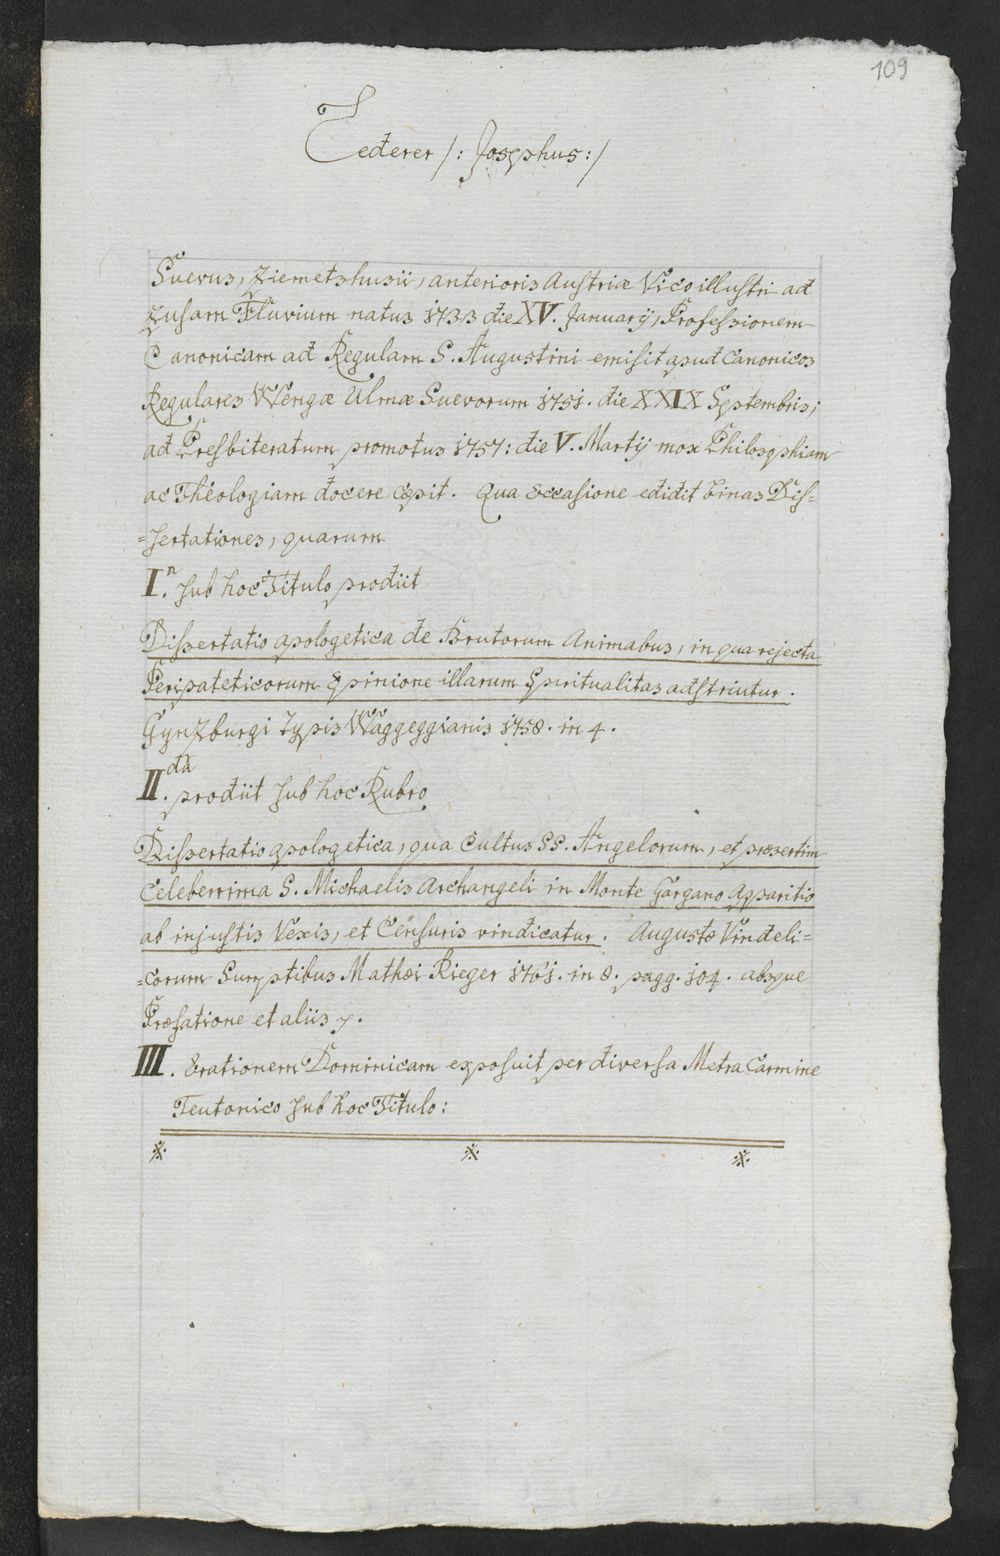 109
Lederer /: Josephus :/
Suevus, Ziemetshusii, anterioris Austriæ Vico illustri ad
Zusam Fluvium natus 1733 die XV. Januarij, Professionem
Canonicam ad Regulam S. Augustini emisit apud Canonicos
Regulares Wengæ Ulmæ Suevorum 1751. die XXIX Septembris;
ad Presbiteratum promotus 1757: die V. Martij mox Philosophiam
ac Theologiam docere cœpit. Qua Occasione edidit binas Dis=
=sertationes, quarum
I.ª sub hoc Titulo prodiit
Dissertatio apologetica de Brutorum Animabus, in qua rejecta
Peripateticorum Opinione illarum Spiritualitas adstruitur.
Gynzburgi Typis Wäggeggianis 1758. in 4.
II.da prodiit sub hoc Rubro
Dissertatio apologetica, qua Cultus SS. Angelorum, et præsertim
Celeberrima S. Michaelis Archangeli in Monte Gargano Apparitio
ab injustis Vexis, et Censuris vindicatur. Augustæ Vindeli=
=corum Sumptibus Mathæi Rieger 1761. in 8. pagg. 104. absque
Præfatione et aliis 7.
III. Orationem Dominicam exposuit per diversa Metra Carmine
Teutonico sub hoc Titulo: